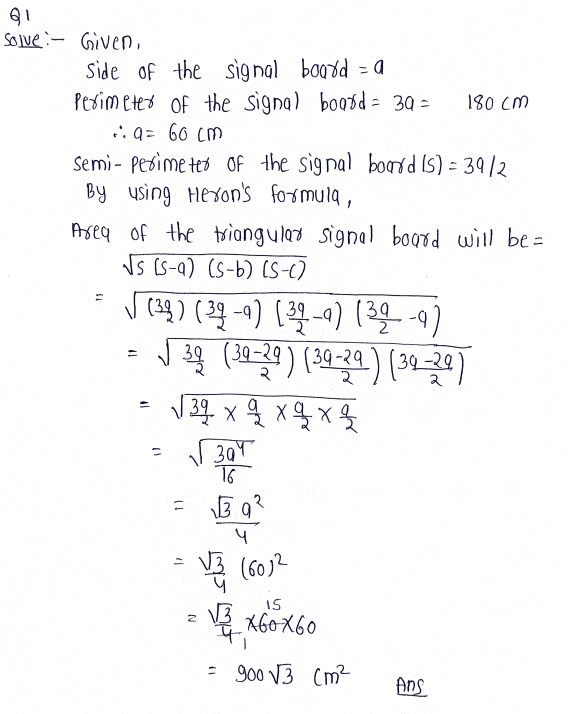 Q1
Solve:- Given,
Side of the signal board = a
Perimeter of the signal board = 3a = 180 cm
∴ a = 60 cm
Semi-perimeter of the signal board (s) = 3a/2
By using Heron's formula,
Area of the triangular signal board will be =
√s (s-a) (s-b) (s-c)
= √(3a/2) (3a/2 -a) (3a/2 -a) (3a/2 -a)
= √3a/2 (3a-2a/2) (3a-2a/2) (3a-2a/2)
= √3a/2 × a/2 × a/2 × a/2
= √3a⁴/16
= √3 a²/4
= √3/4 (60)²
= √3/4 1 × 60 15 × 60
= 900√3 cm² Ans